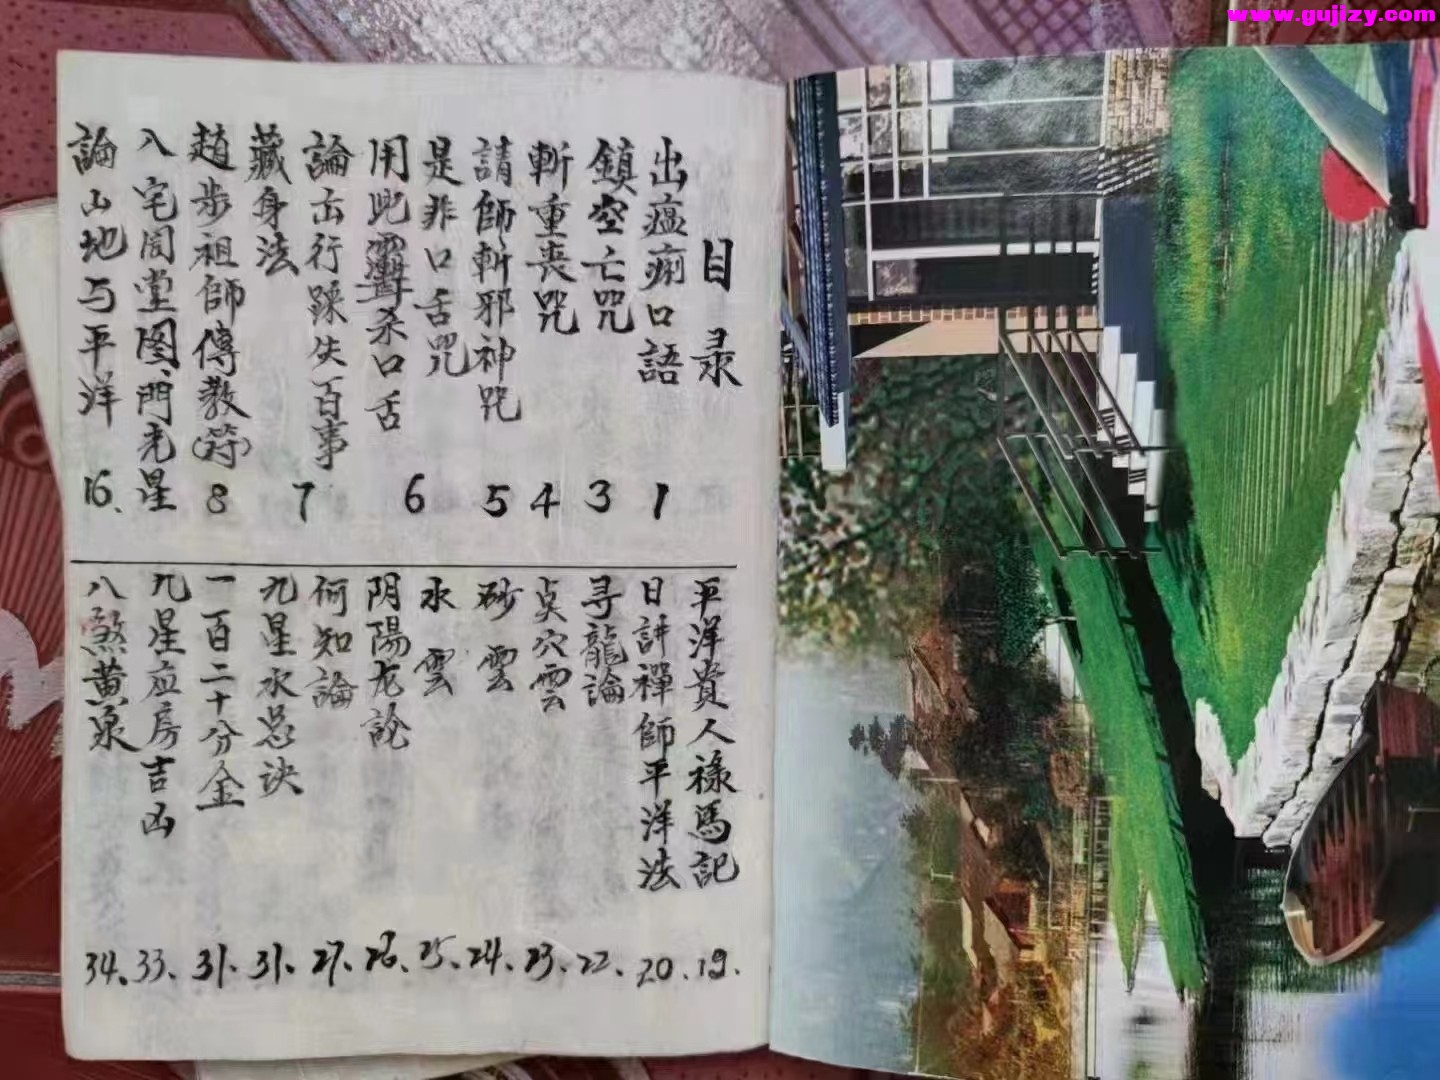 www.gujizy.com
目录
出瘟痢口語 1
鎮空亡咒 3
斬重喪咒 4
請師斬邪神咒 5
是非口舌咒
用此 杀口舌 6
論出行踩失百事 7
藏身法
趙步祖師傳教(符) 8
入宅周堂图、門光星
論山地与平洋 16.
平洋貴人祿馬記 19.
日講禪師平洋法 20.
寻龍論 22.
点穴雲 23.
砂雲 24.
水雲 25.
阴陽龙論 26.
何知論 27.
九星水忌诀 31.
一百二十分金 31.
九星应房吉凶 33.
八煞黄泉 34.